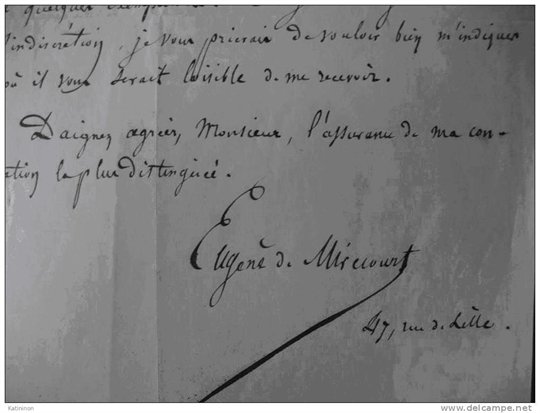 quelques
l'indiscrétion, je vous prierais de vouloir bien m'indiquer
où il vous serait loisible de me recevoir.
Daignez agréer, Monsieur, l'assurance de ma con-
ation la plus distinguée.
Eugène de Mirecourt
47, rue de Lille.
Katininon
©delcampe.net